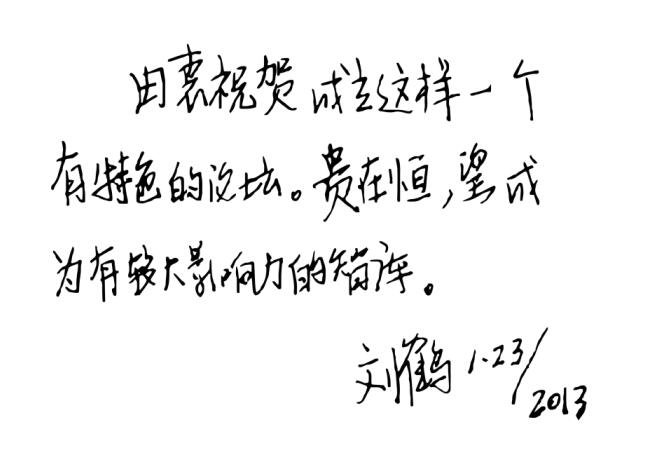 由衷祝贺成立这样一个
有特色的论坛。贵在恒,望成
为有较大影响力的智库。
刘鹤 1.23/2013